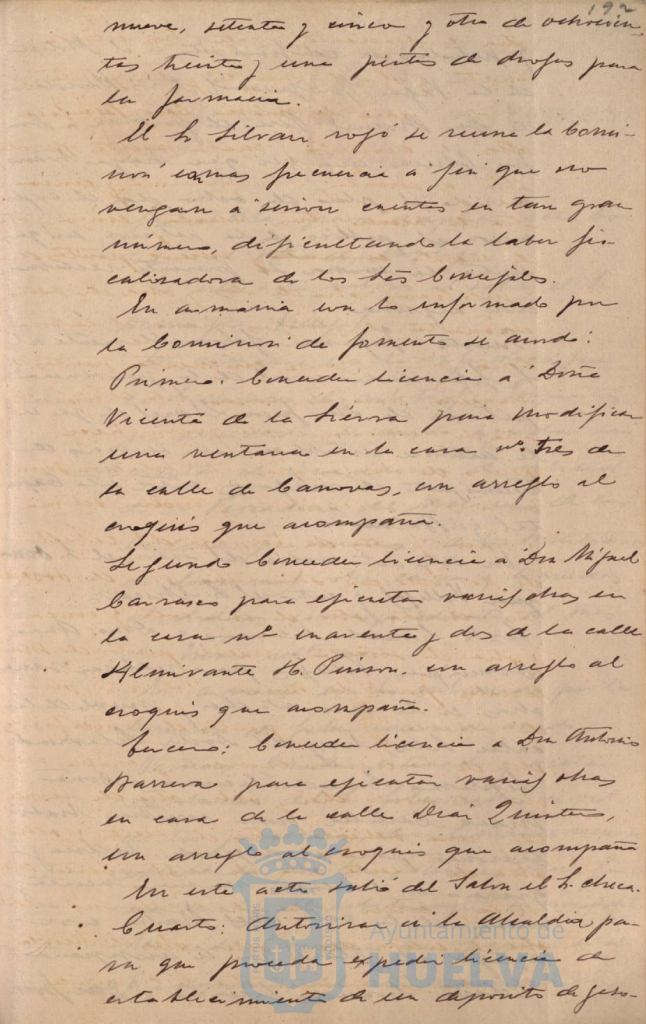 192
nueve, setenta y cinco y otra de ochocien-
tas treinta y una pesetas de drogas para
la farmacia.
El Sr. Silvan rogó se reuna la Comi-
sión con mas frecuencia a fin que no
vengan a sesion cuentas en tan gran
número, dificultando la labor fis-
calizadora de los Srs Concejales.
En armonia con lo informado por
la Comision de fomento se acordo:
Primero. Conceder licencia a Doña
Vicenta de la Sierra para modificar
una ventana en la casa nº tres de
la calle de Canovas, con arreglo al
croquis que acompaña.
Segundo Conceder licencia a Don Miguel
Carrasco para ejecutar varias obras en
la casa nº cuarenta y dos de la calle
Almirante H. Pinson, con arreglo al
croquis que acompaña.
Tercero: Conceder licencia a Don Antonio
Barrera para ejecutar varias obras
en casa de la calle Quintero,
con arreglo al croquis que acompaña
En este acto salió del Salon el Sr. Checa.
Cuarto: Autorizar a la Alcaldia pa-
ra que proceda expedir licencia de
establecimiento de un deposito de gaso-
Ayuntamiento de
HUELVA